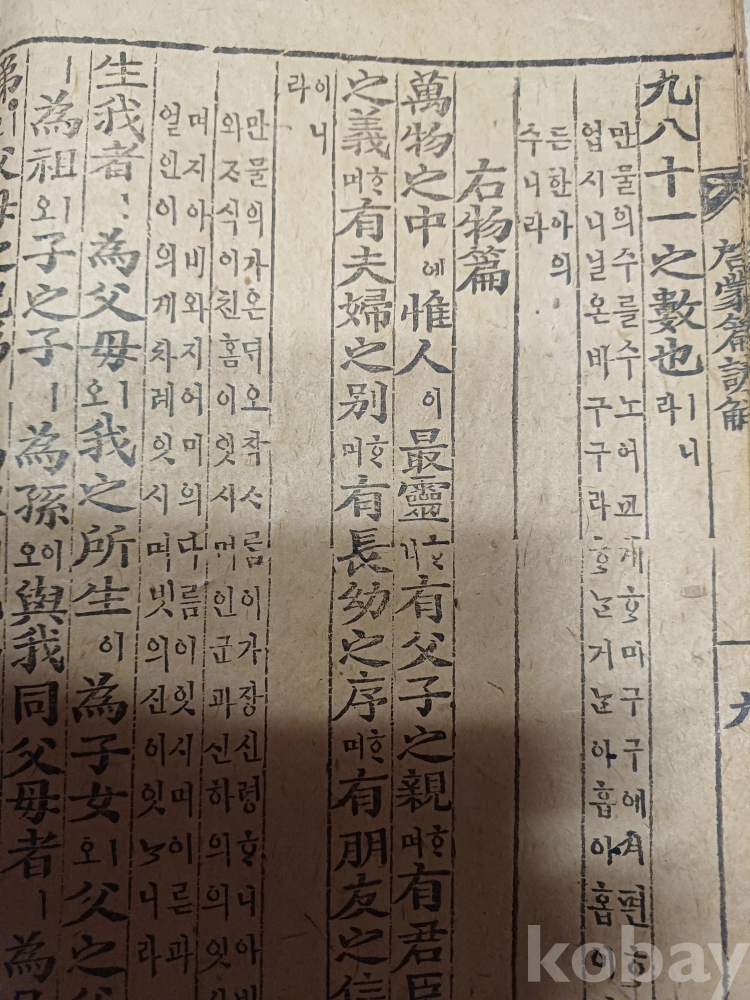 啓蒙篇諺解
九八十一之數也ㅣ니라
만물의수를수노어교계ᄒᆞ미구구에셔편ᄒᆞ
업시니닐온바구구라ᄒᆞᄂᆞᆫ거ᄂᆞᆫ아흡아홉이
든한아의
수니라
右物篇
萬物之中에惟人이最靈ᄒᆞ니有父子之親ᄒᆞ며有君臣
之義ᄒᆞ며有夫婦之別ᄒᆞ며有長幼之序ᄒᆞ며有朋友之信
이니
라
만물의가온ᄃᆡ오작ᄉᆞ름이가장신령ᄒᆞ니아비
와ᄌᆞ식이친홈이잇시며인군과신하의의잇
며지아비와지어미의다름이잇시며이른과
얼인이의게차례잇시며벗의신이잇ᄂᆞ니라
生我者ㅣ為父母ㅣ오我之所生이為子女ㅣ오父之父
ㅣ為祖ㅣ오子之子ㅣ為孫이오與我同父母者ㅣ為
kobay